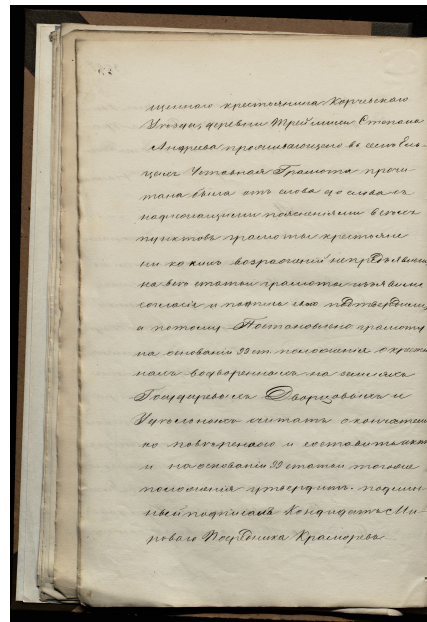 щеннаго крестьянина Корчевскаго
Уезда, деревни Степана
Андреева проживающего въ сель
цомъ Уставная Грамота прочи
тана была отъ слова до слова съ
надлежащими поясненіями всехъ
пунктовъ грамоты крестьяне
ни какихъ возраженій непредъявили
на все статьи грамоты изъявили
согласіе и подпись свою подтвердили,
а потому Постановлено грамоту
на основаніи 99 ст. положенія о кресть
нахъ водворенныхъ на земляхъ
Государевыхъ Дворцовыхъ и
Удельныхъ считать окончатель
но повъренною и составить актъ
и на основаніи 99 статьи тогоже
положенія утвердить. подлин
ный подписалъ Кандидатъ Ми-
роваго Посредника Краморевъ